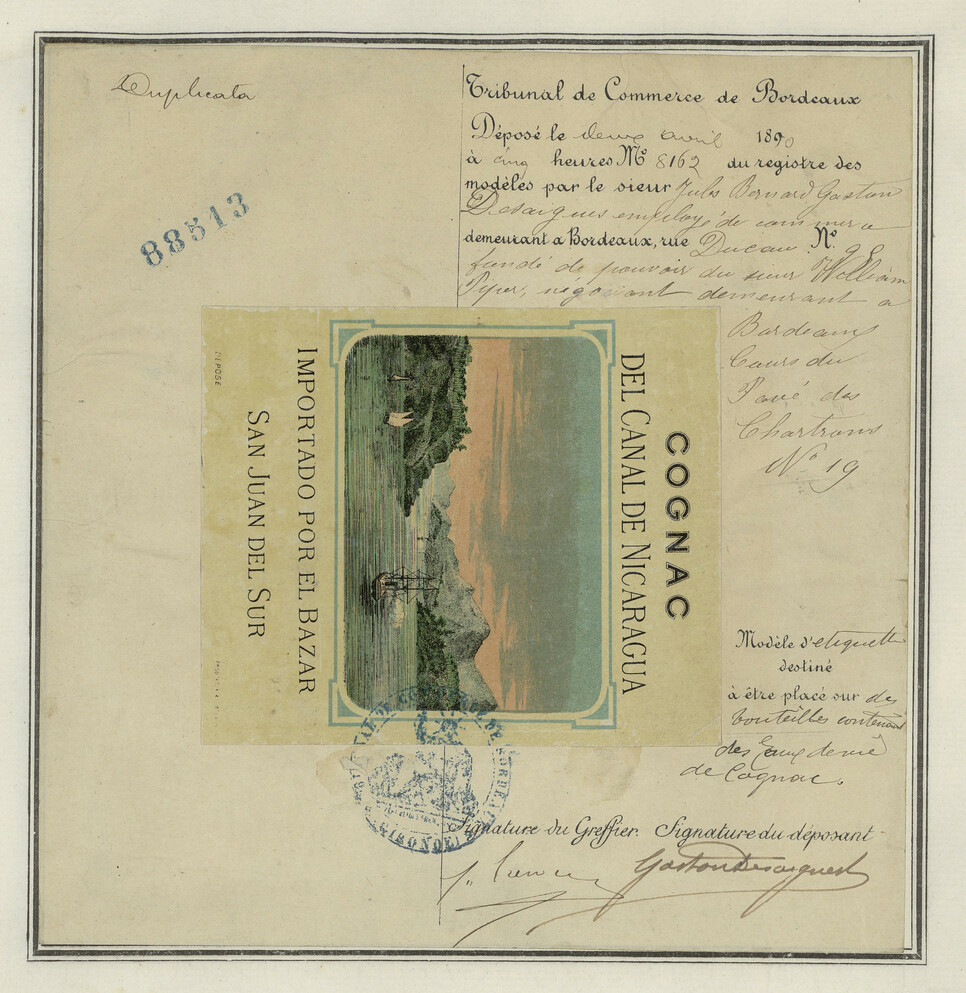 Duplicata
88513
Tribunal de Commerce de Bordeaux
Déposé le deux avril 1890
à cinq heures No 8162 du registre des
modèles par le sieur Jules Bernard Gaston
Desaigues employé de commerce
demeurant a Bordeaux, rue Ducau No
fondé de pouvoir du sieur William
Piper, négociant demeurant a
Bordeaux
Cours du
Pavé des
Chartrons
No 19
COGNAC
DEL CANAL DE NICARAGUA
IMPORTADO POR EL BAZAR
SAN JUAN DEL SUR
DÉPOSÉ
Modèle d'etiquette
destiné
à être placé sur des
bouteilles contenant
des Eaux de vie
de Cognac.
TRIBUNAL DE COMMERCE DE BORDEAUX
GIRONDE
Signature du Greffier. Signature du déposant